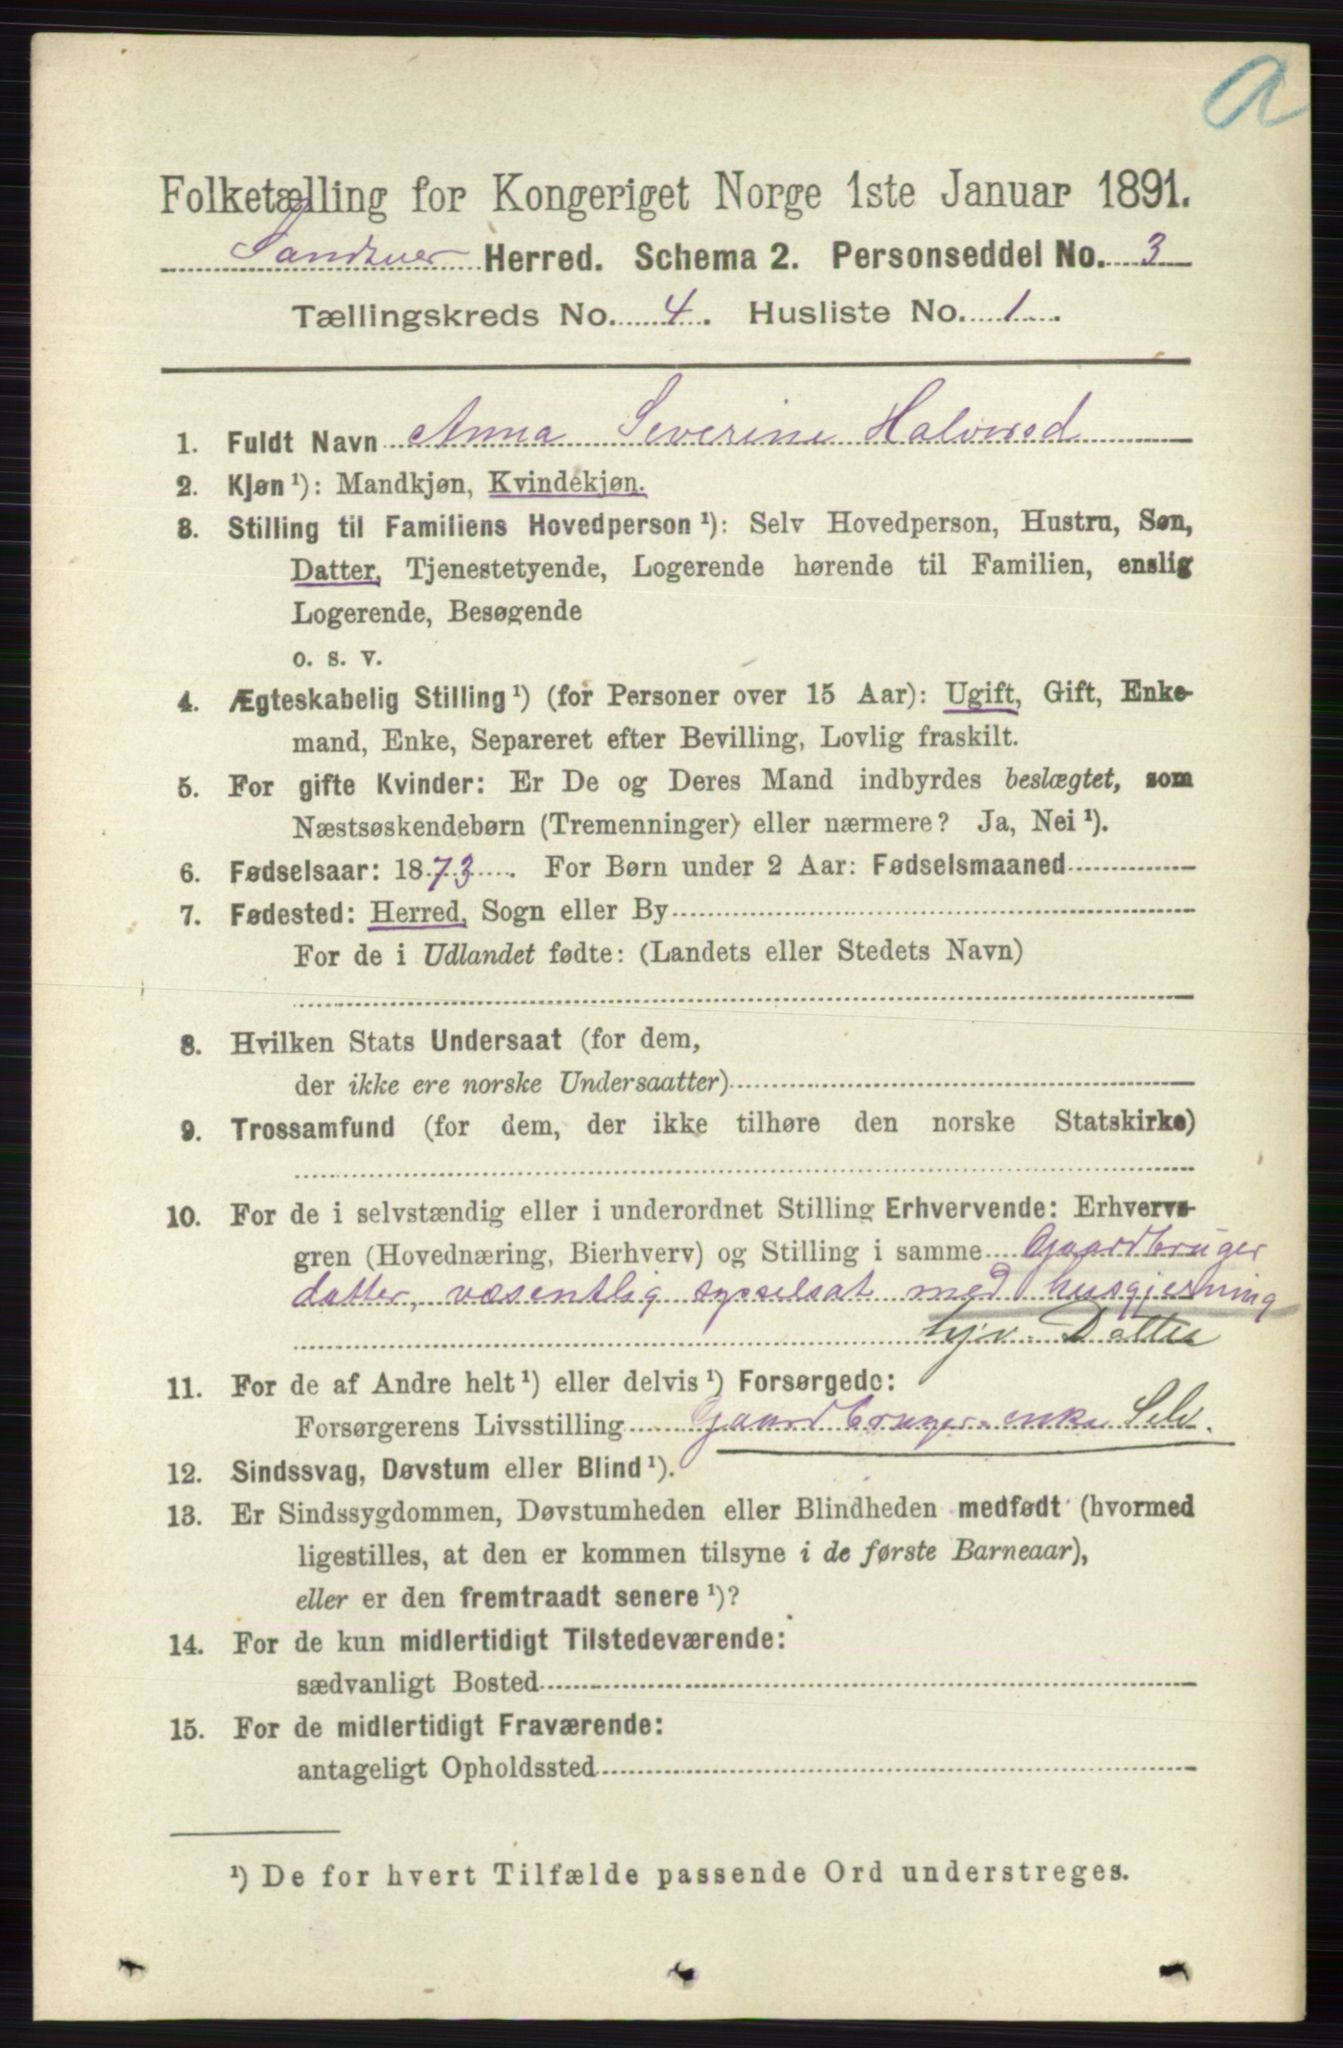 a
Folketælling for Kongeriget Norge 1ste Januar 1891.
Sandsver Herred. Schema 2. Personseddel No. 3
Tællingskreds No. 4. Husliste No. 1.
1. Fuldt Navn Anna Severine Halvrod
2. Kjøn ¹): Mandkjøn, Kvindekjøn.
3. Stilling til Familiens Hovedperson ¹): Selv Hovedperson, Hustru, Søn,
Datter, Tjenestetyende, Logerende hørende til Familien, enslig
Logerende, Besøgende
o. s. v.
4. Ægteskabelig Stilling ¹) (for Personer over 15 Aar): Ugift, Gift, Enke-
mand, Enke, Separeret efter Bevilling, Lovlig fraskilt.
5. For gifte Kvinder: Er De og Deres Mand indbyrdes beslægtet, som
Næstsøskendebørn (Tremenninger) eller nærmere? Ja, Nei ¹).
6. Fødselsaar: 1873. For Børn under 2 Aar: Fødselsmaaned
7. Fødested: Herred, Sogn eller By
For de i Udlandet fødte: (Landets eller Stedets Navn)
8. Hvilken Stats Undersaat (for dem,
der ikke ere norske Undersaatter)
9. Trossamfund (for dem, der ikke tilhøre den norske Statskirke)
10. For de i selvstændig eller i underordnet Stilling Erhvervende: Erhvervs-
gren (Hovednæring, Bierhverv) og Stilling i samme Gaardbruger
datter, væsentlig sysselsat med husgjerning
hjv. Datter
11. For de af Andre helt ¹) eller delvis ¹) Forsørgede:
Forsørgerens Livsstilling Gaardbruger-enke Selv.
12. Sindssvag, Døvstum eller Blind ¹).
13. Er Sindssygdommen, Døvstumheden eller Blindheden medfødt (hvormed
ligestilles, at den er kommen tilsyne i de første Barneaar),
eller er den fremtraadt senere ¹)?
14. For de kun midlertidigt Tilstedeværende:
sædvanligt Bosted
15. For de midlertidigt Fraværende:
antageligt Opholdssted
¹) De for hvert Tilfælde passende Ord understreges.